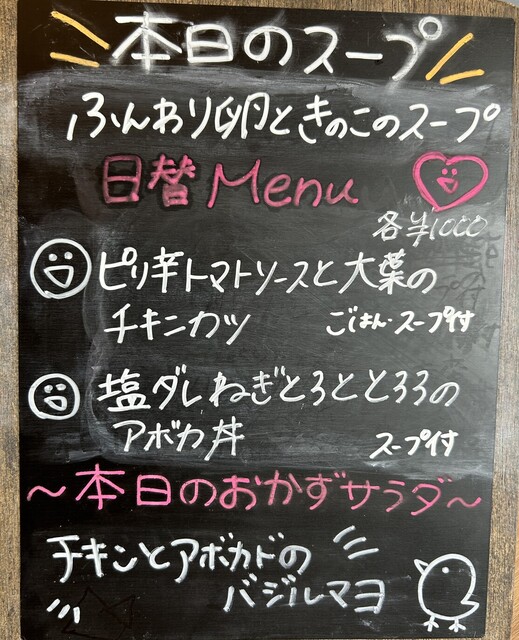 本日のスープ
ふんわり卵ときのこのスープ
日替Menu
各¥1000
ピリ辛トマトソースと大葉の
チキンカツ ごはん・スープ付
塩ダレねぎとろととろろの
アボカ丼 スープ付
～本日のおかずサラダ～
チキンとアボカドの
バジルマヨ